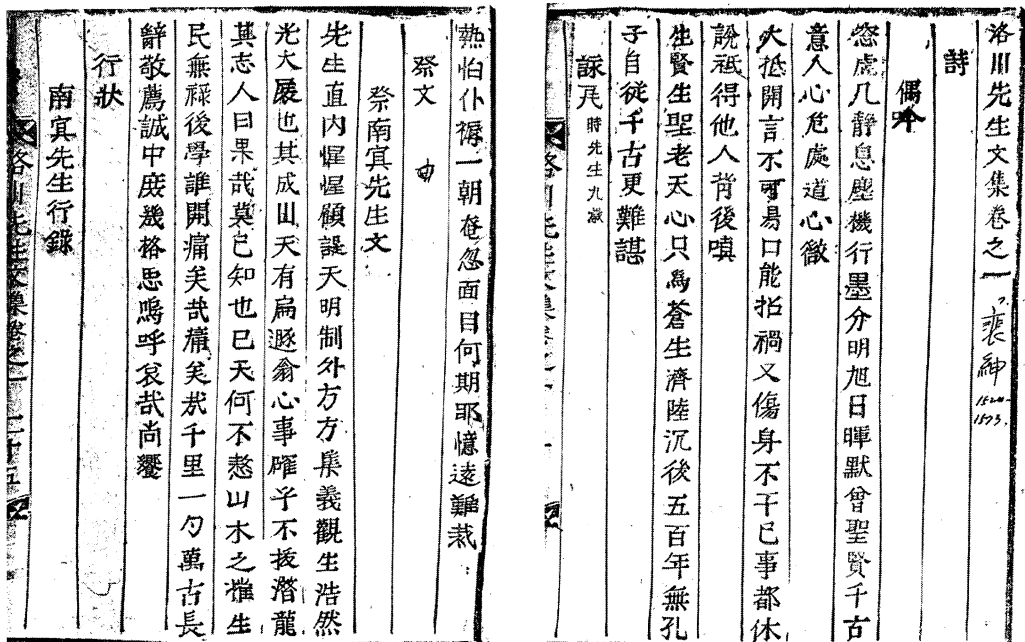 洛川先生文集卷之一 裵紳
1520-
1573.
詩
偶吟
虎几靜息塵機行墨分明旭日暉默會聖賢千古
意人心危處道心微
大抵開言不可易口能招禍又傷身不干己事都休
說祗得他人背後嗔
生賢生聖老天心只爲蒼生濟陸沉後五百年無孔
子自從千古更難諶
詠月 時先生九歲
熱怕仆褥一朝奄忽面目何期耶憶遠難裁
祭文
祭南冥先生文
先生直內惺惺顧諟天明制外方方集義觀生浩然
光大展也其成山天有扁遯翁心事確乎不拔潛龍
其志人曰果哉莫己知也已天何不憖山木之摧生
民無祿後學誰開痛矣哉痛矣哉千里一勺萬古長
辭敬薦誠中庶幾格思嗚呼哀哉尚饗
行狀
南冥先生行錄
洛川先生文集卷之一 二十五